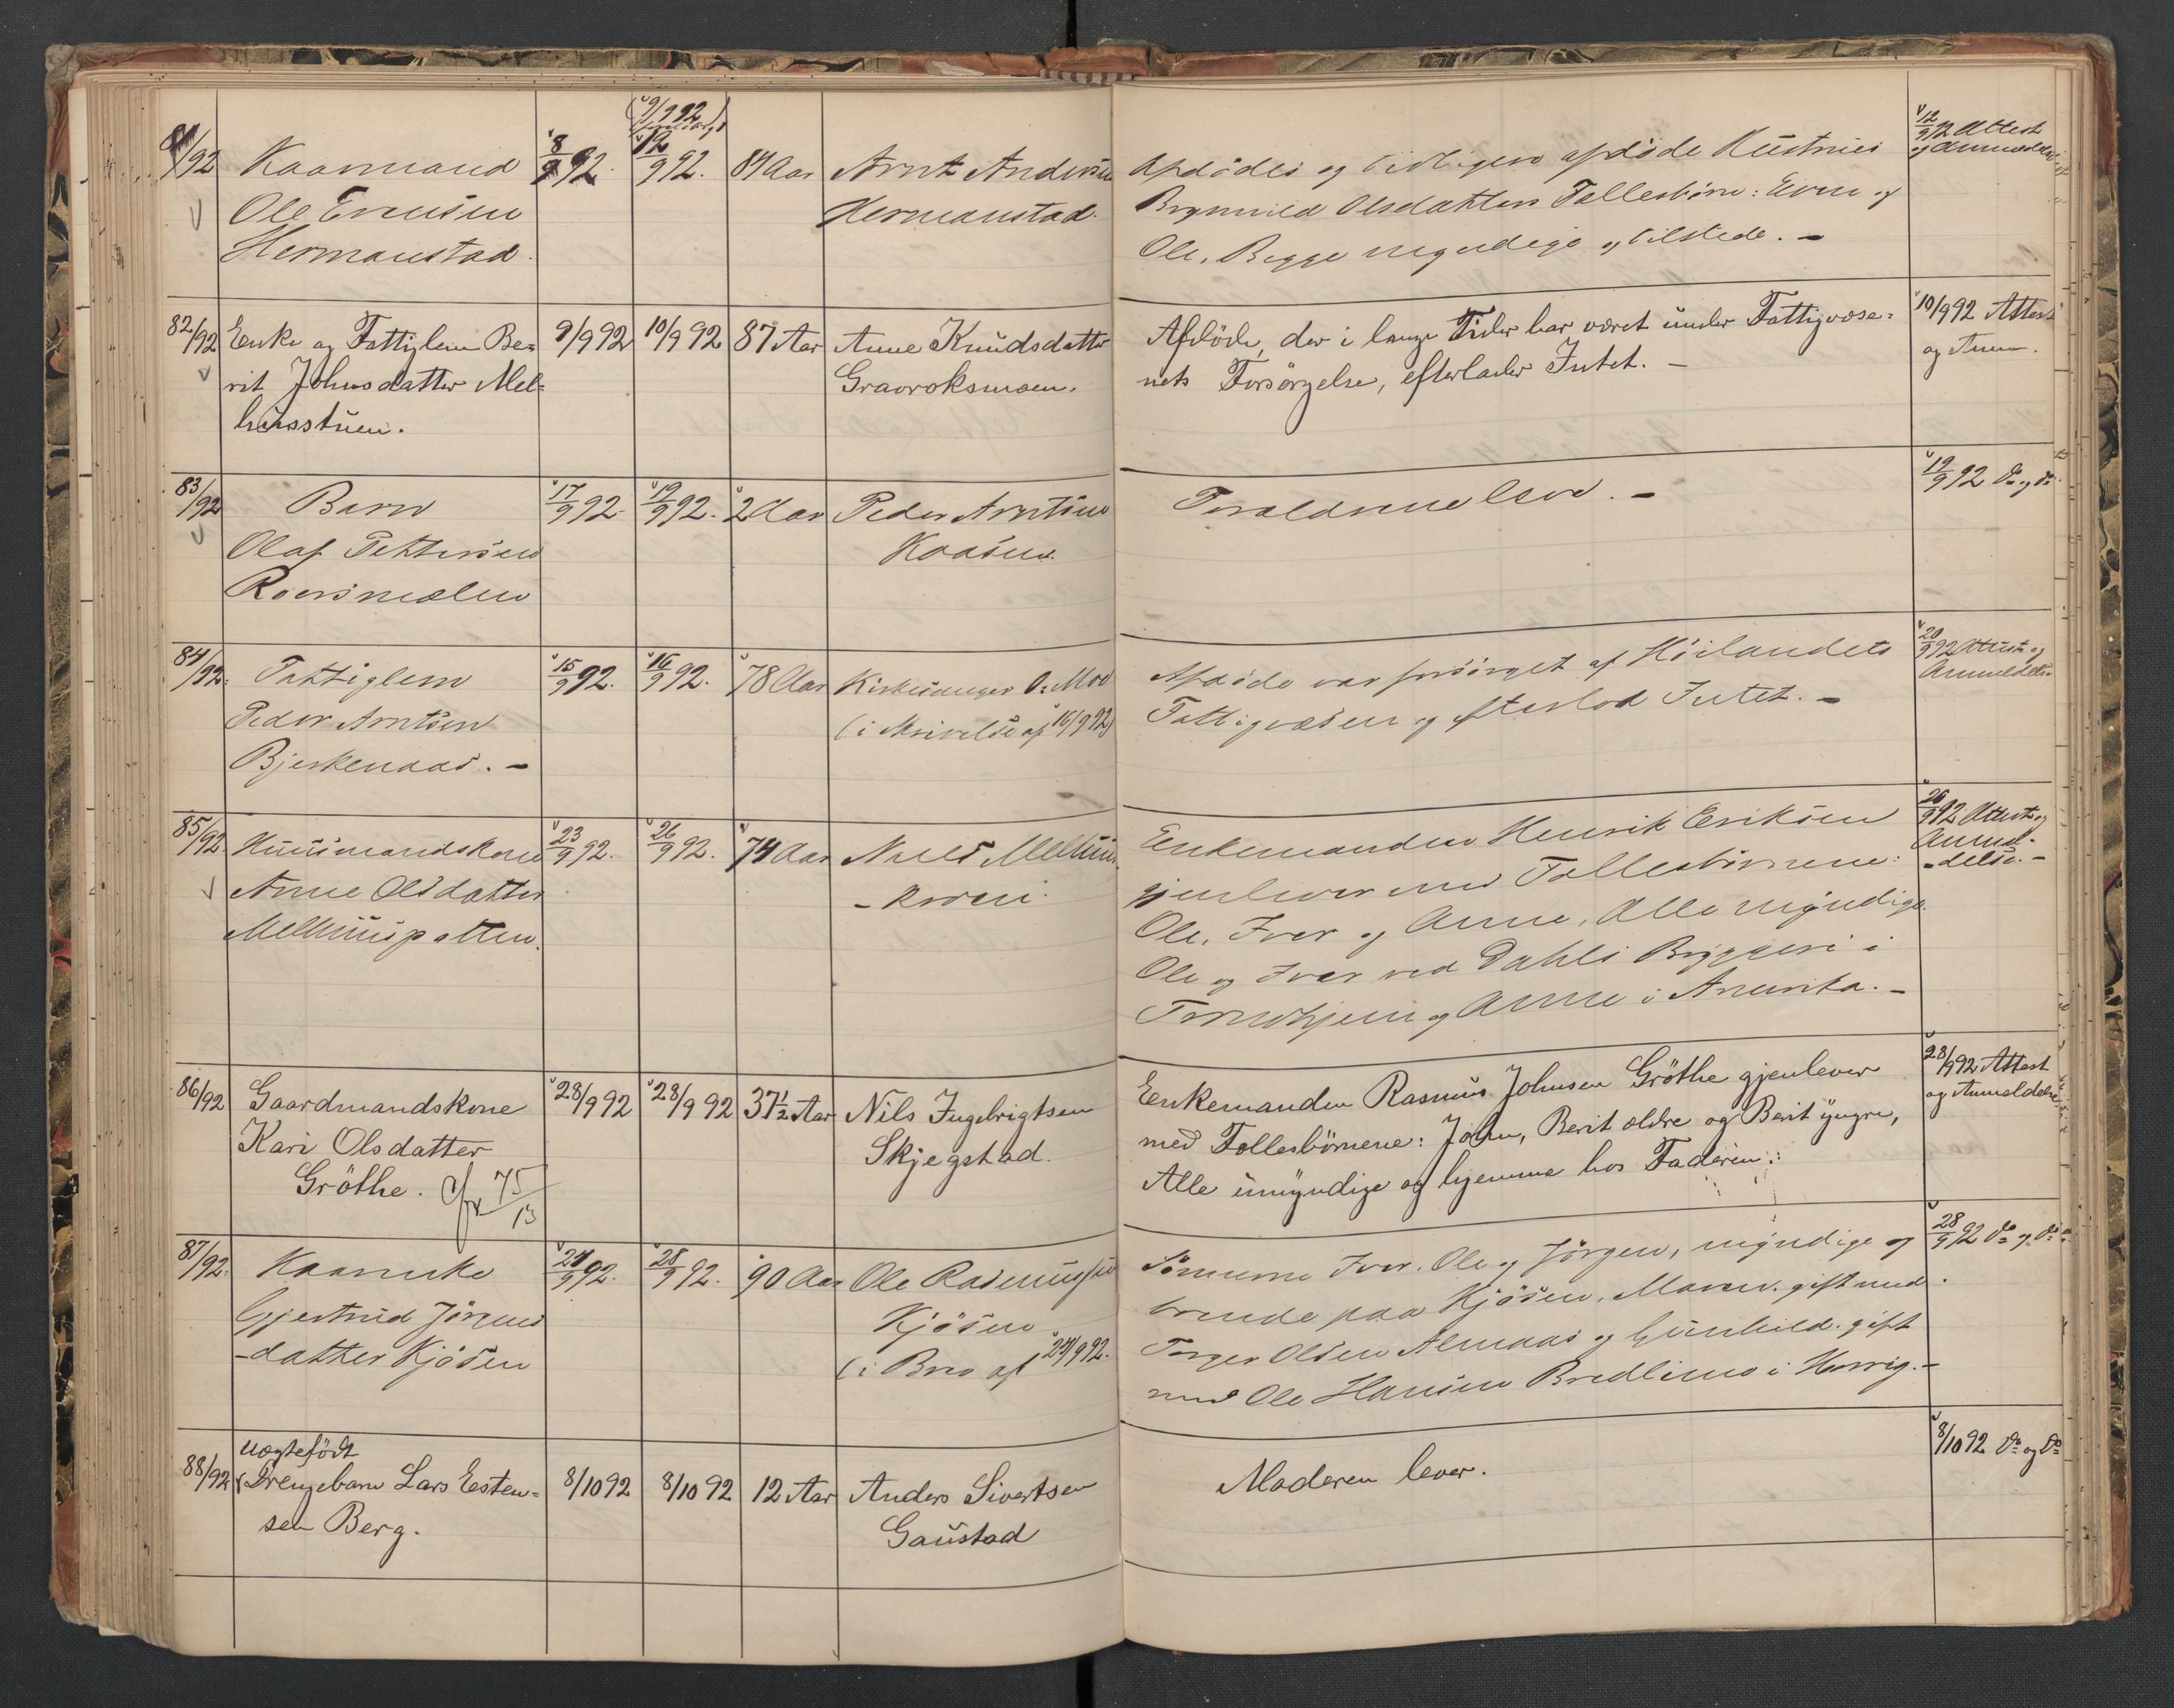 81/92 Kaarmand 8/9 92. (9/9 92 12/9 92. 84 Aar Arnt Andersen
Ole Evensen Hermanstad.
Hermanstad.
Afdødes og tidligere afdøde Hustrues
Olsdatters Fællesbørn: Even og
Ole, Begge myndige og tilstede. –
12/9 92 Attest
og Anmeldelse
82/92 Enke og Fattiglem Be= 9/9 92 10/9 92 87 Aar Anne Knudsdatter
rit Johnsdatter Mel= Gravroksmoen.
husstuen.
Afdøde, der i lange Tider har været under Fattigvæse=
nets Forsörgelse, efterlader Intet. –
10/9 92 Attest
og Anm.
83/92 Barn 17/9 92. 19/9 92. 2 Aar Peder Arntsen
Olaf Pettersen Kaasen.
Forældrene lever. –
19/9 92 do og do
84/92. Fattiglem 15/9 92. 16/9 92. 78 Aar Kirkesanger O. Moe
Peder Arntsen (i Skrivelse af 16/9 92)
Bjerkenaas. –
Afdøde var forsörget af Höilandets
Fattigvæsen og efterlod Intet. –
20/9 92 Attest og
Anmeldelse
85/92 Huusmandskone 23/9 92. 26/9 92. 74 Aar Niels Melhus
Anne Olsdatter
Melhuus
Enkemanden Henrik Eriksen
gjenlever med Fællesbörnene:
Ole, Iver og Anne, Alle myndige.
Ole og Iver ved Dahls Bryggeri i
Trondhjem og Anne i Amerika. –
26/9 92 Attest og
Anmel-
-delse. –
86/92 Gaardmandskone 28/9 92 28/9 92 37½ Aar Nils Ingebrigtsen
Kari Olsdatter Skjegstad.
Gröthe. cfr 75/13
Enkemanden Rasmus Johnsen Gröthe gjenlever
med Fællesbörnene: John, Berit ældre og Berit yngre,
Alle umyndige og hjemme hos Faderen.
28/9 92 Attest
og Anmeldelse
87/92. Kaarenke 24/9 92. 28/9 92. 90 Aar Ole Rasmussen
Gjertrud Jörgens Kjösen
-datter Kjösen (i Brev af 24/9 92.
Sönnerne Iver, Ole og Jörgen, myndige og
boende paa Kjösen, Maren, gift med
Torger Olsen Almaas og Gunhild, gift
med Ole Hansen Bredlimo i Horrig. –
28/9 92 do og do
88/92 Uægtefödt
Drengebarn Lars Esten= 8/10 92 8/10 92 12 Aar Anders Sivertsen
sen Berg. Gaustad
Moderen lever.
8/10 92 do og do